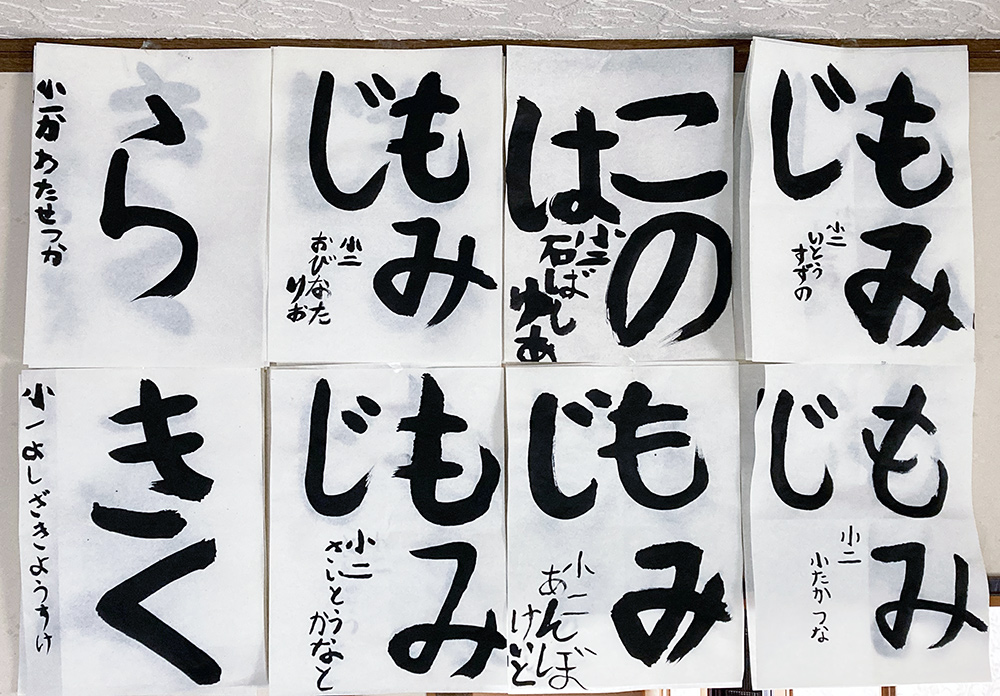 もみ
じ
小二
いとう
すずの
この
は
小二
石ばし
ゆあ
もみ
じ
小二
おびなた
りお
うら
小一かわたせつか
もみ
じ
小二
小たかつな
もみ
じ
小二
あんぼ
けいと
もみ
じ
小二
さいとう
かなと
きく
小一よしざきようすけ